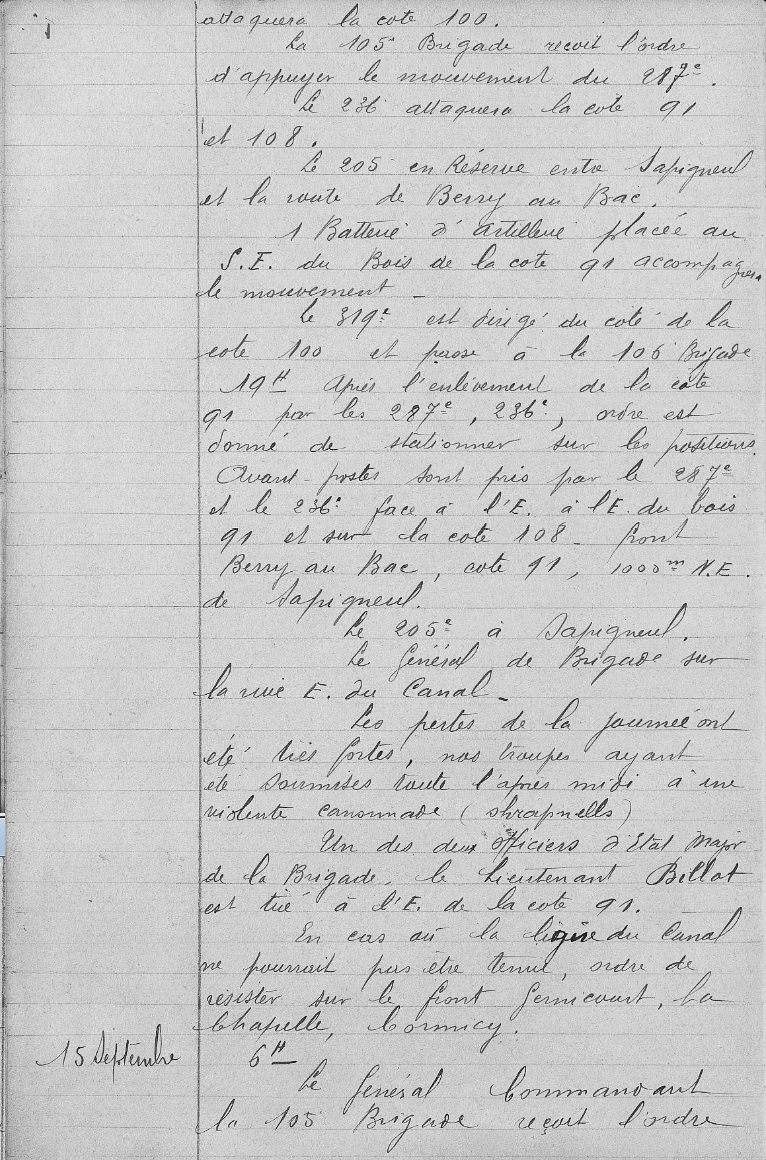 attaquera la cote 100.
La 105e Brigade reçoit l'ordre
d'appuyer le mouvement du 287e.
Le 236 attaquera la cote 91
et 108.
Le 205 en Réserve entre Sapigneul
et la route de Berry au Bac.
1 Batterie d'artillerie placée au
S.E. du Bois de la cote 91 accompagnera
le mouvement _
Le 319e est dirigé du coté de la
cote 100 et passe à la 106 Brigade
19H Après l'enlèvement de la cote
91 par les 287e, 236e, ordre est
donné de stationner sur les positions.
Avant-postes sont pris par le 287e
et le 236e face à l'E. à l'E. du bois
91 et sur la cote 108 - front
Berry au Bac, cote 91, 1000m N.E.
de Sapigneul.
Le 205e à Sapigneul.
Le Général de Brigade sur
la rive E. du Canal _
Les pertes de la journée ont
été très fortes, nos troupes ayant
été soumises toute l'après midi à une
violente canonnade (shrapnells)
Un des deux officiers d'Etat Major
de la Brigade, le Lieutenant Billot
est tué à l'E. de la cote 91.
En cas où la ligne du Canal
ne pourrait pas être tenue, ordre de
résister sur le front Gernicourt, La
Chapelle, Cormicy.
15 Septembre 6H
Le Général Commandant
la 105 Brigade reçoit l'ordre